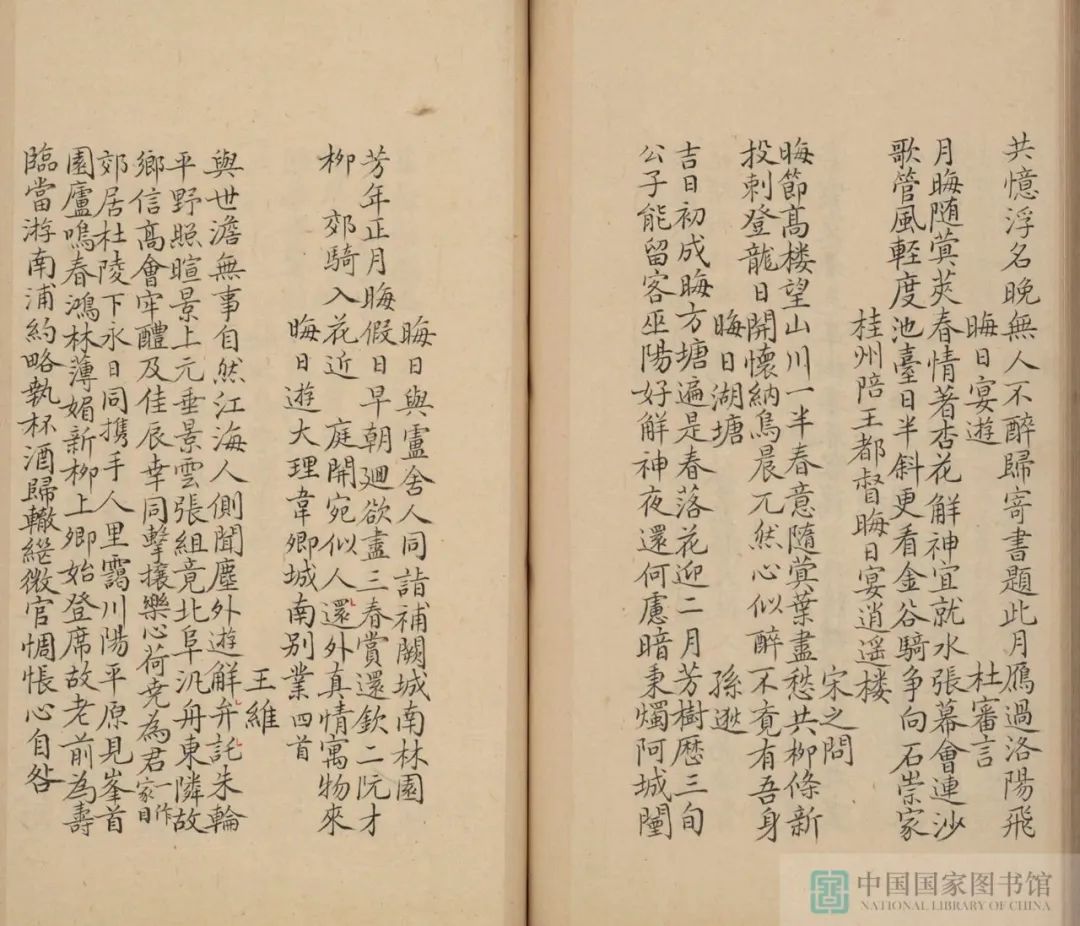 共憶浮名晚無人不醉歸寄書題此月鴈過洛陽飛
晦日宴遊 杜審言
月晦随蓂莢春情著杏花解神宜就水張幕會連沙
歌管風軽度池臺日半斜更看金谷騎争向石崇家
桂州陪王都督晦日宴逍遥楼
宋之問
晦節高楼望山川一半春意隨蓂葉盡愁共柳條新
投刺登龍日開懷納鳥晨兀然心似醉不覔有吾身
晦日湖塘 孫逖
吉日初成晦方塘遍是春落花迎二月芳樹歴三旬
公子能留客巫陽好解神夜還何慮暗秉燭阿城闉
晦日與盧舍人同詣補闕城南林園
芳年正月晦假日早朝廻欲盡三春賞還欽二阮才
柳 郊騎入花近 庭開宛似人還外真情寓物來
晦日遊大理韋卿城南别業四首
王維
與世澹無事自然江海人側聞塵外遊解弁託朱輪
平野照暄景上元垂景雲張組竟北阜汎舟東隣故
鄉信高會牢醴及佳辰幸同擊攘樂心荷尭為君一作家日
郊居杜陵下永日同携手人里靄川陽平原見峯首
園廬鳴春鴻林薄媚新柳上卿始登席故老前為壽
臨當游南浦約略執杯酒歸轍絕微官惆悵心自咎
中国国家图书馆
NATIONAL LIBRARY OF CHINA